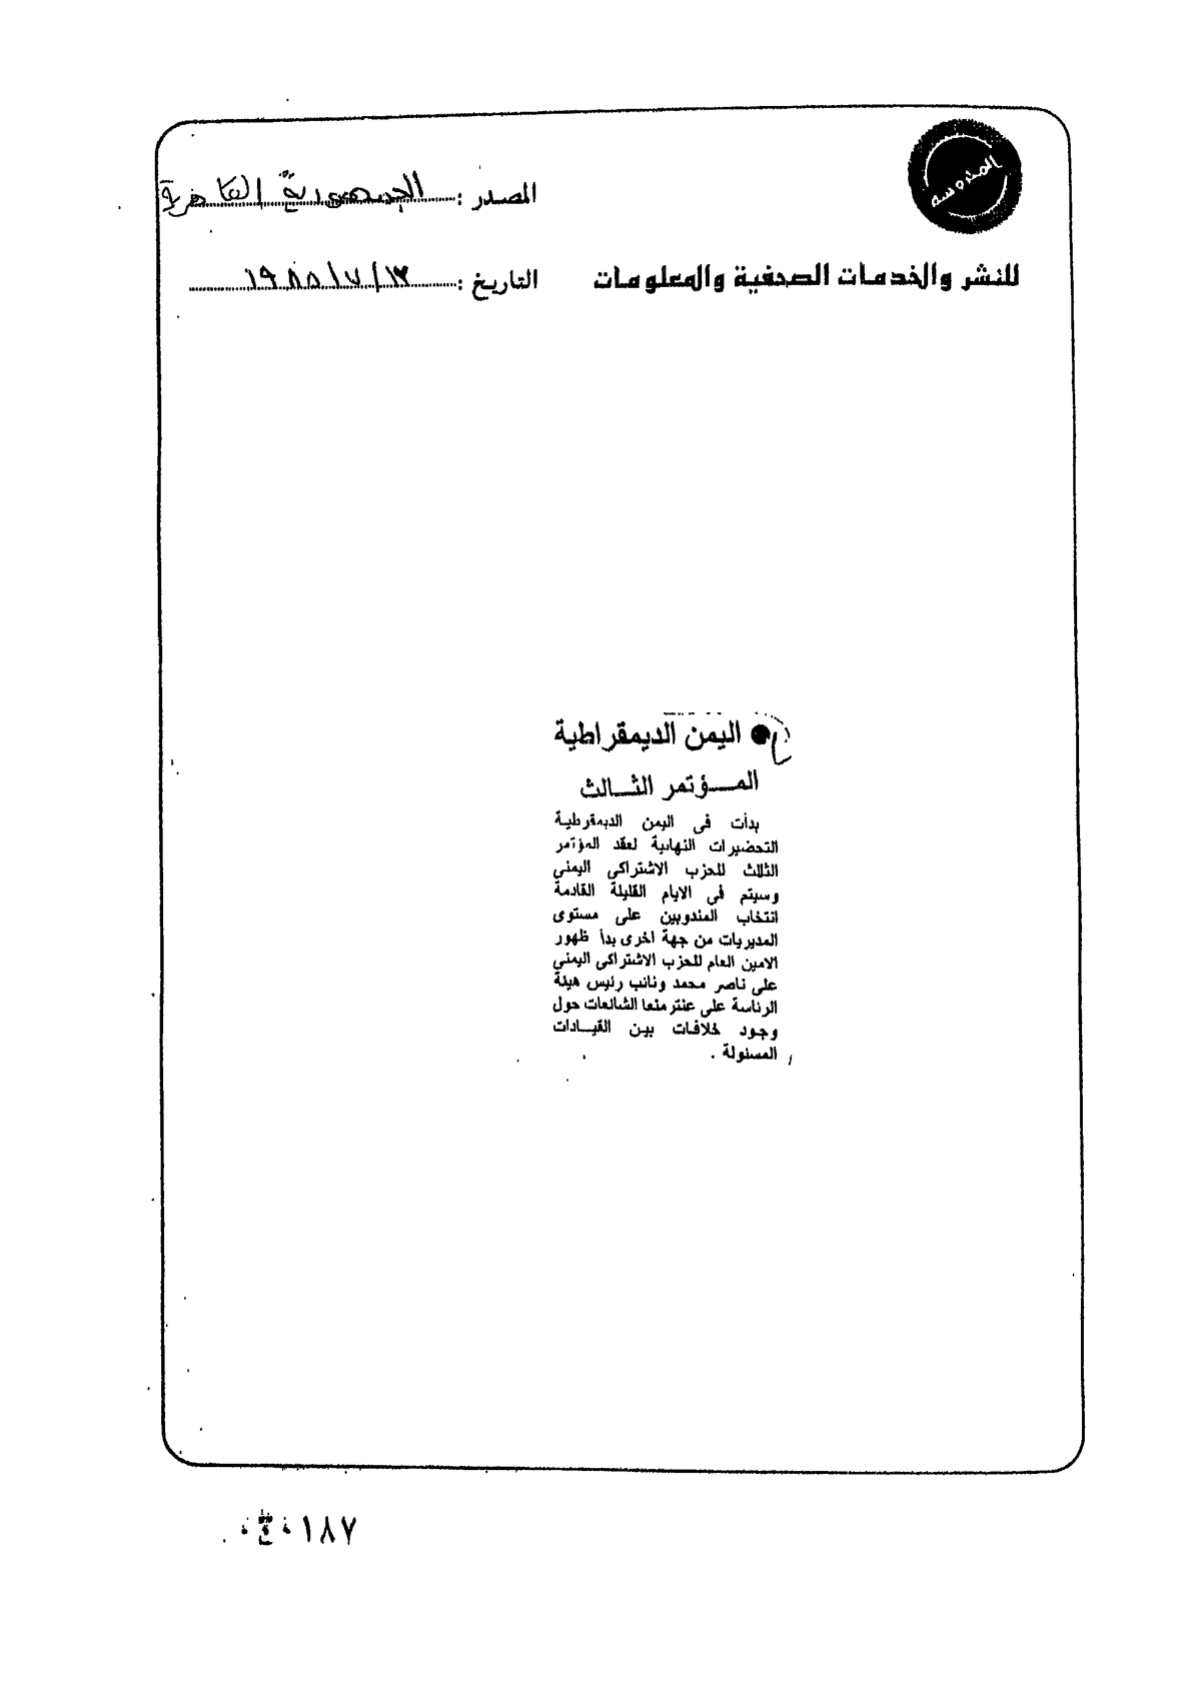 المحروسة
المصدر : الجمهورية القاهرية
للنشر والخدمات الصحفية والمعلومات
التاريخ : ١٣ / ٧ / ١٩٨٥
● اليمن الديمقراطية
المــؤتمر الثــالث
بدأت فى اليمن الديمقرطية
التحضيرات النهائية لعقد المؤتمر
الثالث للحزب الاشتراكى اليمنى
وسيتم فى الايام القليلة القادمة
انتخاب المندوبين على مستوى
المديريات من جهة اخرى بدأ ظهور
الامين العام للحزب الاشتراكى اليمنى
على ناصر محمد ونائب رئيس هيئة
الرئاسة على عنتر منعا الشائعات حول
وجود خلافات بين القيــادات
المسئولة .
١٨٧